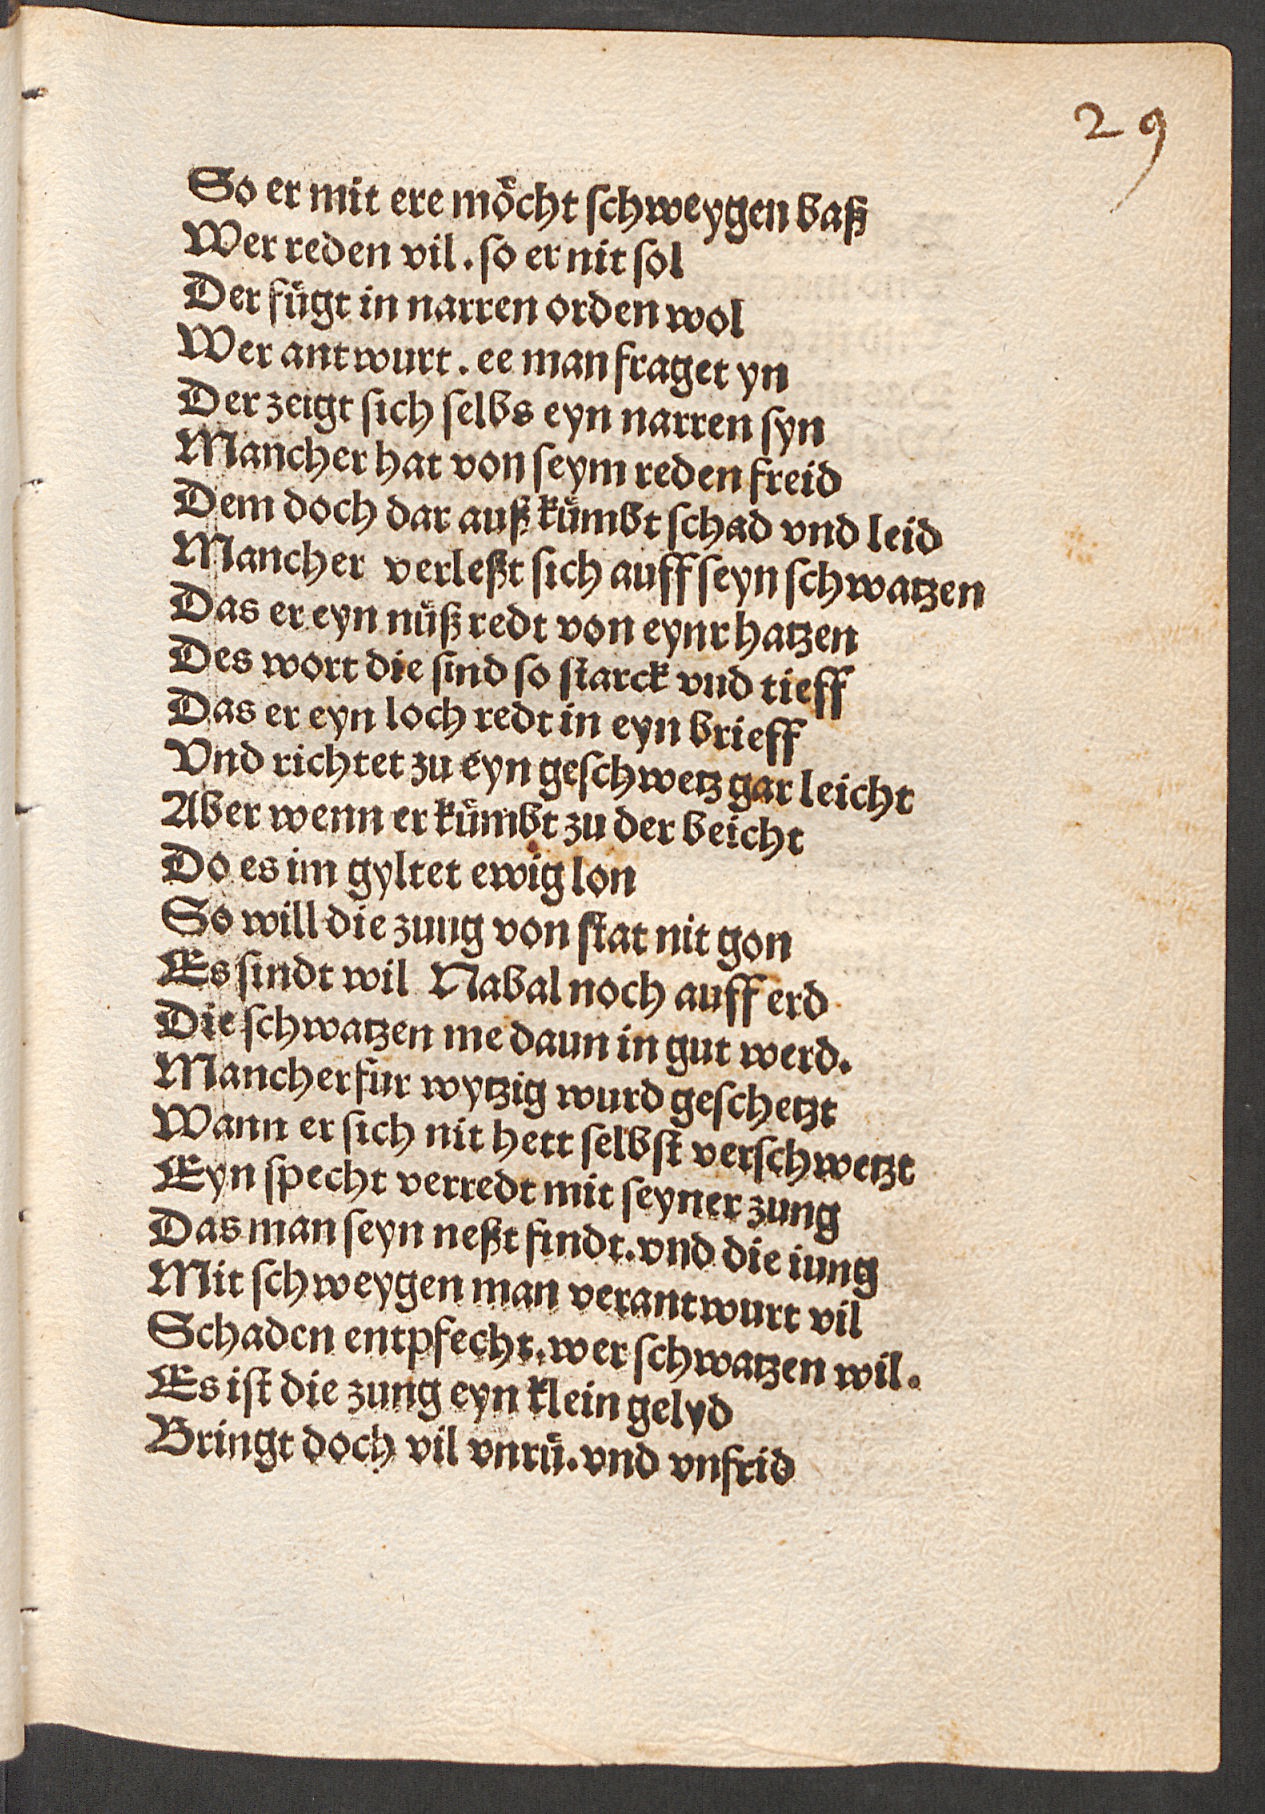 29
So er mit ere möcht ſchweygen baß
Wer reden vil. ſo er nit ſol
Der fügt in narren orden wol
Wer antwurt. ee man fraget yn
Der zeigt ſich ſelbs eyn narren ſyn
Mancher hat von ſeym reden freid
Dem doch dar auß kümbt ſchad vnd leid
Mancher verleßt ſich auff ſeyn ſchwatzen
Das er eyn nüß redt von eynr hatzen
Des wort die ſind ſo ſtarck vnd tieff
Das er eyn loch redt in eyn brieff
Vnd richtet zu eyn geſchwetz gar leicht
Aber wenn er kümbt zu der beicht
Do es im gyltet ewig lon
So will die zung von ſtat nit gon
Es ſindt wil Nabal noch auff erd
Die ſchwatzen me daun in gut werd.
Mancher fur wytzig wurd geſchetzt
Wann er ſich nit hett ſelbſt verſchwetzt
Eyn ſpecht verredt mit ſeyner zung
Das man ſeyn neßt findt. vnd die iung
Mit ſchweygen man verantwurt vil
Schaden entpfecht. wer ſchwatzen wil.
Es iſt die zung eyn klein gelyd
Bringt doch vil vnrü. vnd vnfrid